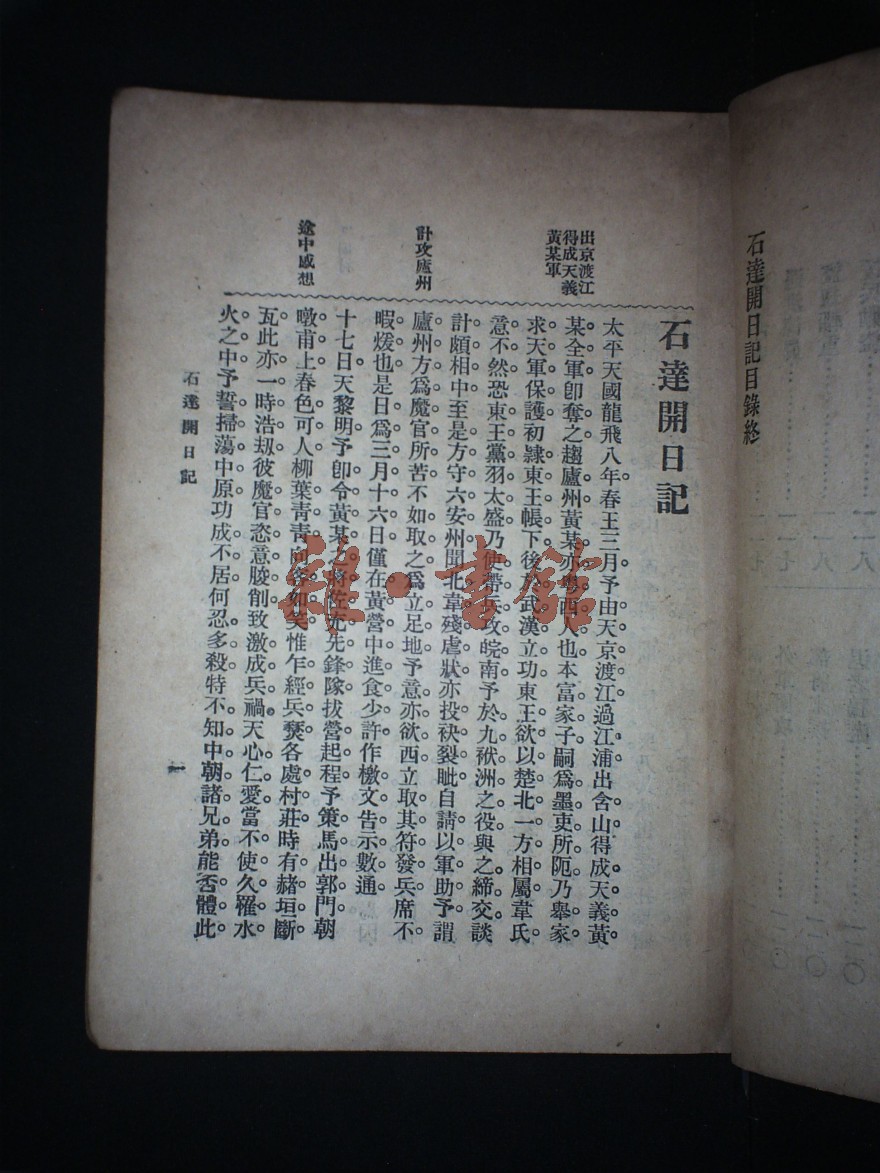 石達開日記目錄終
石達開日記
出京渡江
得成天義
黃某軍
計攻廬州
途中感想
太平天國龍飛八年春王三月予由天京渡江。過江浦出含山得成天義黃
某全軍卽奪之趨廬州黃某亦粵西人也本富家子嗣爲墨吏所阨乃舉家
求天軍保護初隸東王帳下後於武漢立功東王欲以楚北一方相屬韋氏
意不然恐東王黨羽太盛乃使帶兵攻皖南予於九洑洲之役與之締交談
計頗相中至是方守六安州聞北韋殘虐狀亦投袂裂眦自請以軍助予謂
廬州方爲魔官所苦不如取之爲立足地予意亦欲西立取其符發兵席不
暇煖也是日爲三月十六日僅在黃營中進食少許作檄文告示數通
十七日天黎明予卽令黃某之將佐充先鋒隊拔營起程予策馬出郭門朝
暾甫上春色可人柳葉靑靑向客如笑惟乍經兵燹各處村莊時有赭垣斷
瓦此亦一時浩刼彼魔官恣意朘削致激成兵禍天心仁愛當不使久罹水
火之中予誓掃蕩中原功成不居何忍多殺特不知中朝諸兄弟能否體此
石達開日記
一
雜·書館